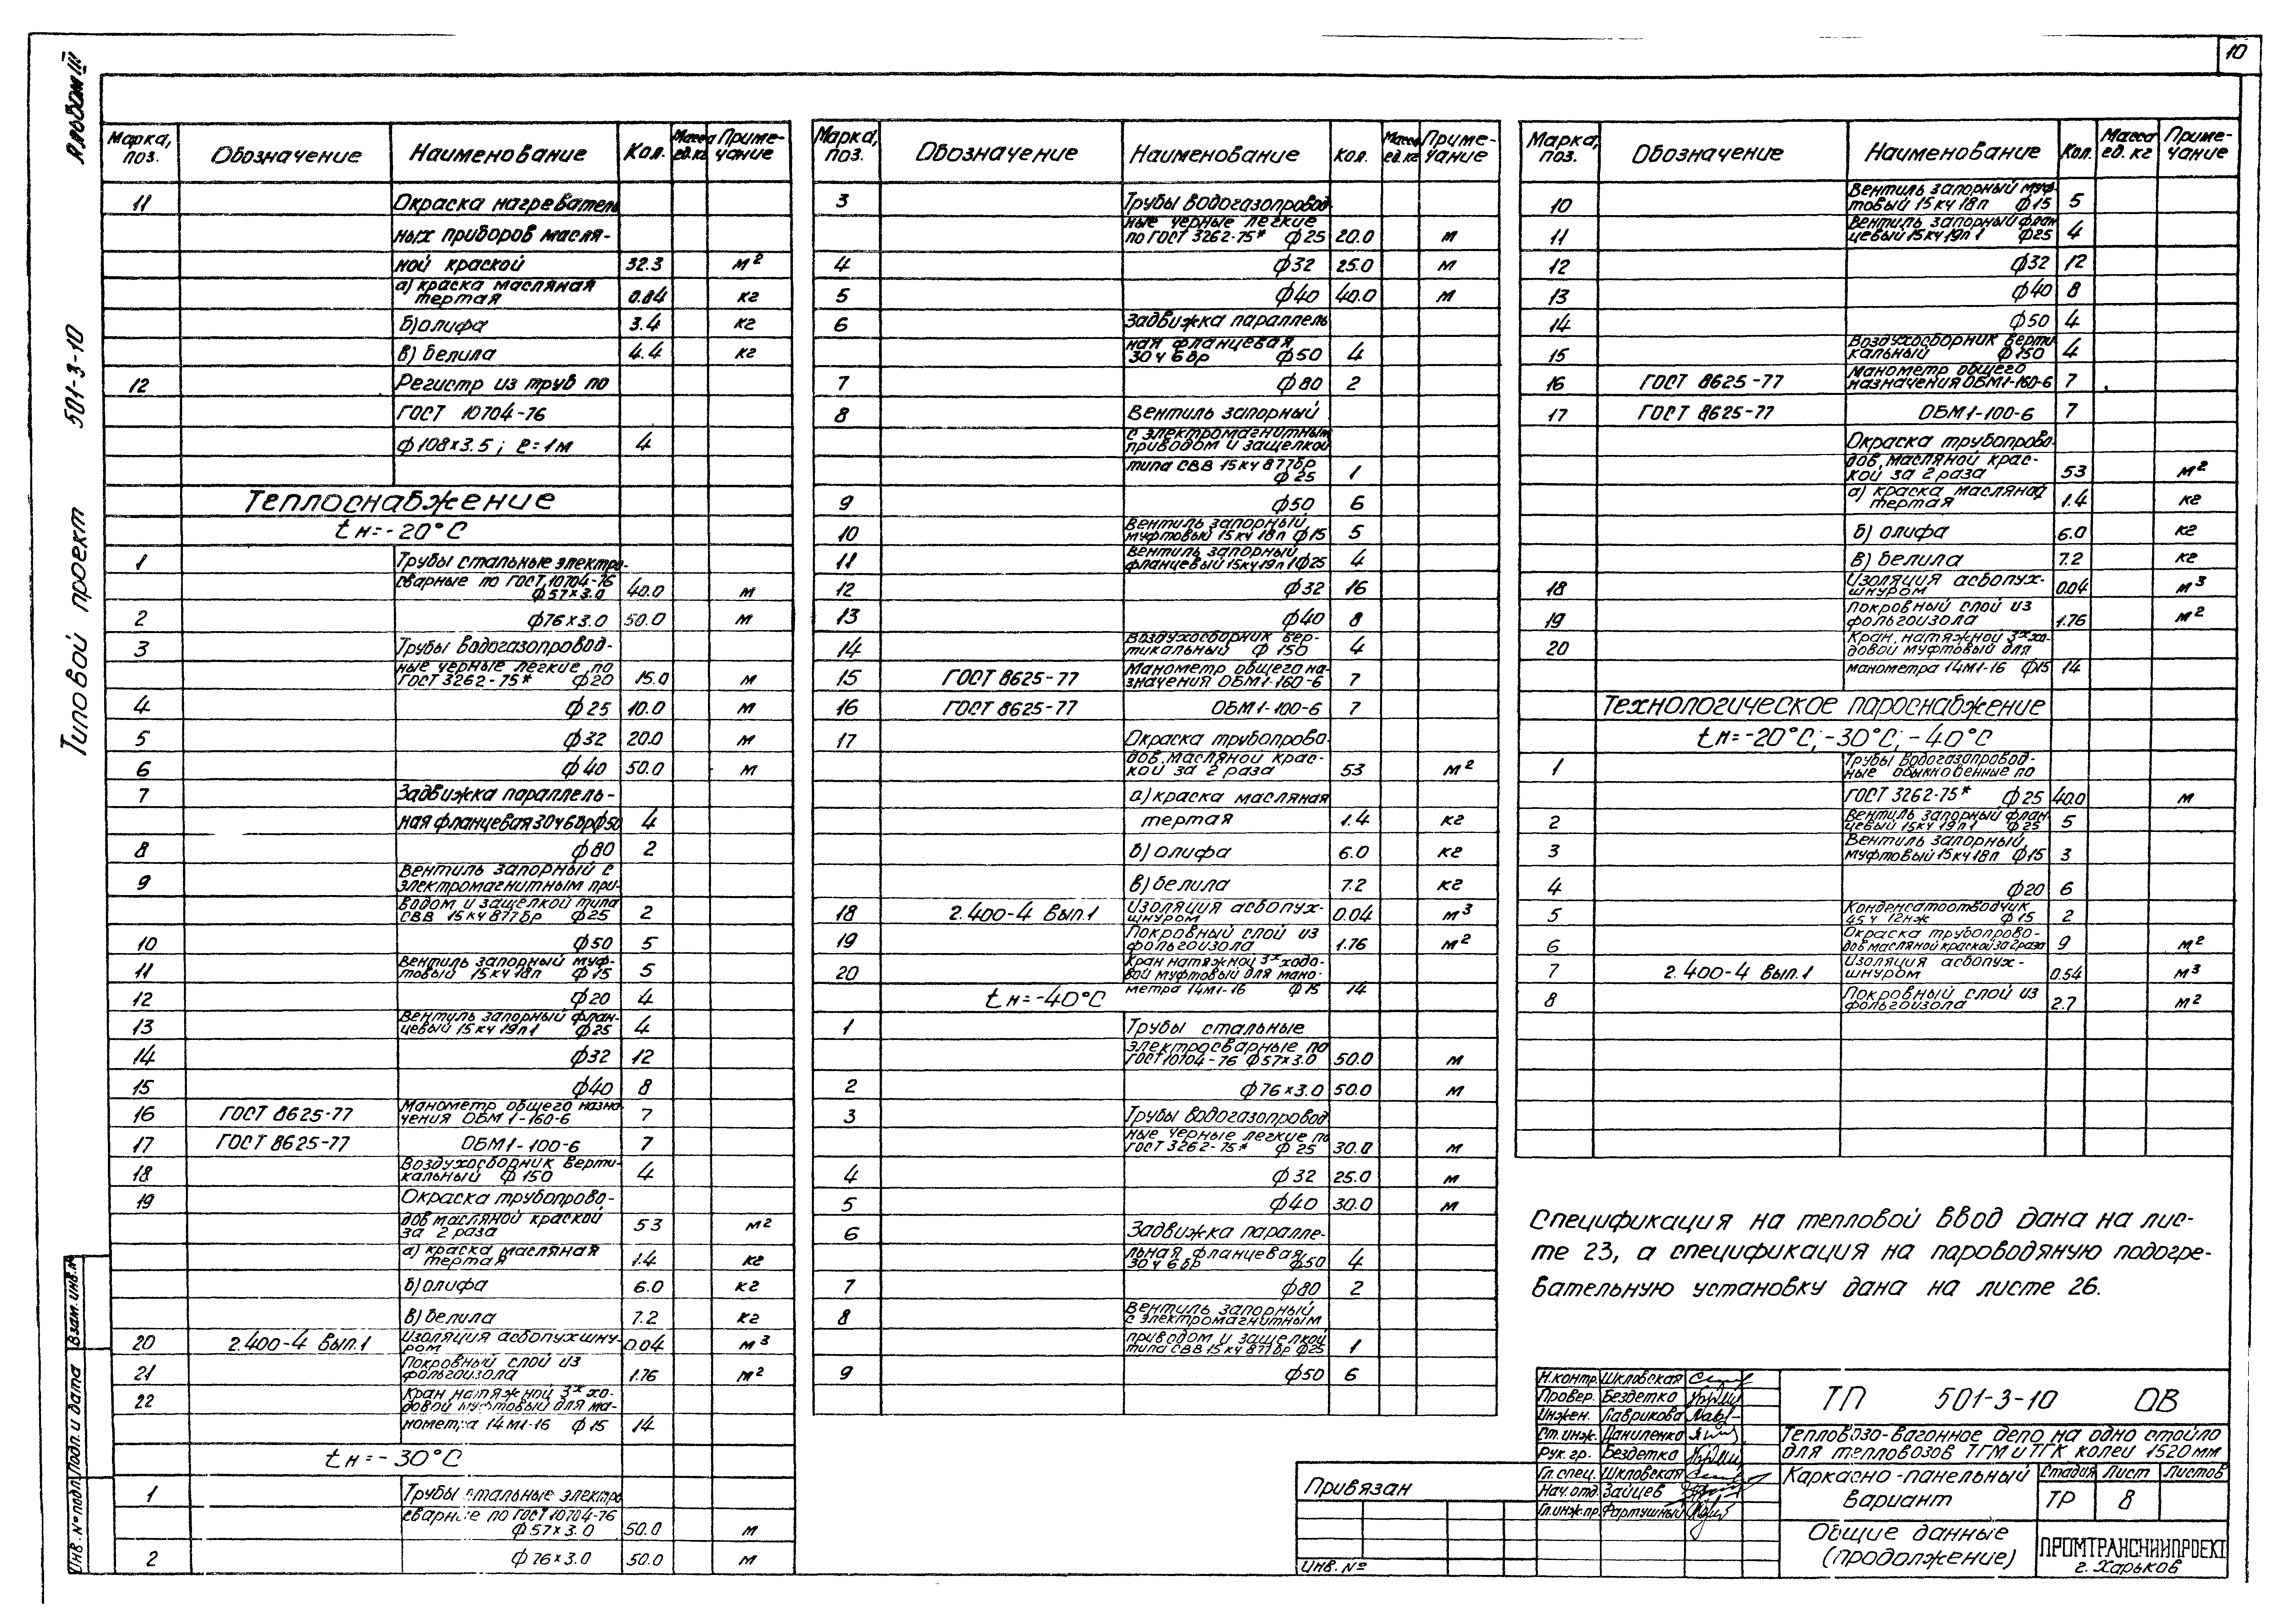 10
Альбом III
501-3-10
Типовой проект
Марка, поз. Обозначение Наименование Кол. Масса ед. кг Приме-чание
11 Окраска нагреватель
ных приборов масля-
ной краской 32.3 м²
а) краска масляная
тертая 0.84 кг
б) олифа 3.4 кг
в) белила 4.4 кг
12 Регистр из труб по
ГОСТ 10704-76
ф108×3.5; ℓ=1м 4
Теплоснабжение
tн=-20°С
1 Трубы стальные электро-
сварные по ГОСТ 10704-76
ф57×3.0 40.0 м
2 ф76×3.0 50.0 м
3 Трубы водогазопровод-
ные черные легкие по
ГОСТ 3262-75* ф20 15.0 м
4 ф25 10.0 м
5 ф32 20.0 м
6 ф40 50.0 м
7 Задвижка параллель-
ная фланцевая 30ч6бр ф50 4
8 ф80 2
9 Вентиль запорный с
электромагнитным при-
водом и защелкой типа
СВВ 15кч877бр ф25 2
10 ф50 5
11 Вентиль запорный муф-
товый 15кч18п ф15 5
12 ф20 4
13 Вентиль запорный флан-
цевый 15кч19п1 ф25 4
14 ф32 12
15 ф40 8
16 ГОСТ 8625-77 Манометр общего назна-
чения ОБМ1-160-6 7
17 ГОСТ 8625-77 ОБМ1-100-6 7
18 Воздухосборник верти-
кальный ф150 4
19 Окраска трубопрово-
дов масляной краской
за 2 раза 53 м²
а) краска масляная
тертая 1.4 кг
б) олифа 6.0 кг
в) белила 7.2 кг
20 2.400-4 Вып.1 Изоляция асбопухшну-
ром 0.04 м³
21 Покровный слой из
фольгоизола 1.76 м²
22 Кран натяжной 3х хо-
довой муфтовый для ма-
нометра 14М1-16 ф15 14
tн=-30°С
1 Трубы стальные электро
сварные по ГОСТ 10704-76
ф57×3.0 50.0 м
2 ф76×3.0 50.0 м
Марка, поз. Обозначение Наименование Кол. Масса ед. кг Приме-чание
3 Трубы водогазопровод-
ные черные легкие
по ГОСТ 3262-75* ф25 20.0 м
4 ф32 25.0 м
5 ф40 40.0 м
6 Задвижка параллель
ная фланцевая
30ч6бр ф50 4
7 ф80 2
8 Вентиль запорный
с электромагнитным
приводом и защелкой
типа СВВ 15кч877бр
ф25 1
9 ф50 6
10 Вентиль запорный
муфтовый 15кч18п ф15 5
11 Вентиль запорный
фланцевый 15кч19п1 ф25 4
12 ф32 16
13 ф40 8
14 Воздухосборник вер-
тикальный ф150 4
15 ГОСТ 8625-77 Манометр общего на-
значения ОБМ1-160-6 7
16 ГОСТ 8625-77 ОБМ1-100-6 7
17 Окраска трубопрово-
дов масляной крас-
кой за 2 раза 53 м²
а) краска масляная
тертая 1.4 кг
б) олифа 6.0 кг
в) белила 7.2 кг
18 2.400-4 Вып.1 Изоляция асбопух-
шнуром 0.04 м³
19 Покровный слой из
фольгоизола 1.76 м²
20 Кран натяжной 3х ходо-
вой муфтовый для мано-
метра 14М1-16 ф15 14
tн=-40°С
1 Трубы стальные
электросварные по
ГОСТ 10704-76 ф57×3.0 50.0 м
2 ф76×3.0 50.0 м
3 Трубы водогазопровод
ные черные легкие по
ГОСТ 3262-75* ф25 30.0 м
4 ф32 25.0 м
5 ф40 30.0 м
6 Задвижка паралле-
льная фланцевая
30ч6бр ф50 4
7 ф80 2
8 Вентиль запорный
с электромагнитным
приводом и защелкой
типа СВВ 15кч877бр ф25 1
9 ф50 6
Марка, поз. Обозначение Наименование Кол. Масса ед. кг Приме-чание
10 Вентиль запорный муф-
товый 15кч18п ф15 5
11 Вентиль запорный флан
цевый 15кч19п1 ф25 4
12 ф32 12
13 ф40 8
14 ф50 4
15 Воздухосборник верти
кальный ф150 4
16 ГОСТ 8625-77 Манометр общего
назначения ОБМ1-160-6 7
17 ГОСТ 8625-77 ОБМ1-100-6 7
Окраска трубопрово-
дов масляной крас-
кой за 2 раза 53 м²
а) краска масляная
тертая 1.4 кг
б) олифа 6.0 кг
в) белила 7.2 кг
18 Изоляция асбопух-
шнуром 0.04 м³
19 Покровный слой из
фольгоизола 1.76 м²
20 Кран натяжной 3х хо-
довой муфтовый для
манометра 14М1-16 ф15 14
Технологическое пароснабжение
tн=-20°С; -30°С; -40°С
1 Трубы водогазопровод-
ные обыкновенные по
ГОСТ 3262-75* ф25 40.0 м
2 Вентиль запорный флан-
цевый 15кч19п1 ф25 5
3 Вентиль запорный
муфтовый 15кч18п ф15 3
4 ф20 6
5 Конденсатоотводчик
45ч12нж ф15 2
6 Окраска трубопрово-
дов масляной краской за 2 раза 9 м²
7 2.400-4 Вып.1 Изоляция асбопух-
шнуром 0.54 м³
8 Покровный слой из
фольгоизола 2.7 м²
Спецификация на тепловой ввод дана на лис-
те 23, а спецификация на пароводяную подогре-
вательную установку дана на листе 26.
Н.контр. Шкловская
Провер. Бездетко
Инжен. Гаврикова
Ст.инж. Даниленко
Рук.гр. Бездетко
Гл.спец. Шкловская
Нач.отд. Зайцев
Гл.инж.пр. Фартушный
ТП 501-3-10 ОВ
Тепловозо-вагонное депо на одно стойло
для тепловозов ТГМ и ТГК колеи 1520мм
Каркасно-панельный
вариант
Стадия Лист Листов
ТР 8
Общие данные
(продолжение)
ПРОМТРАНСНИИПРОЕКТ
г. Харьков
Привязан
Инв. №
Взам. инв. №
Подп. и дата
Инв. № подл.